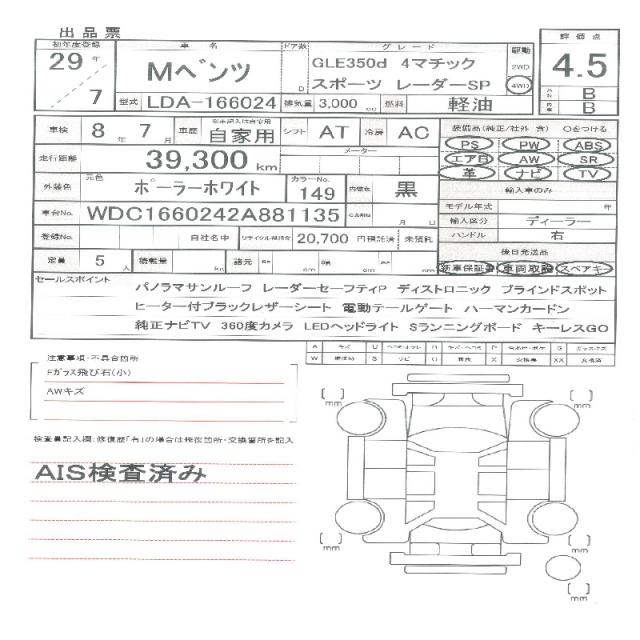 出品票
初年度登録 車名 ドア数 グレード 駆動 評価点
29年 7 Mベンツ D GLE350d 4マチック スポーツ レーダーSP 2WD 4WD 4.5
型式 LDA-166024 排気量 3,000 cc 燃料 軽油 B
B
車検 8年 7月 車歴 自家用 シフト AT 冷房 AC 装備品(純正/社外 含) ○をつける
走行距離 39,300 km メーター PS PW ABS
エアB AW SR
革 ナビ TV
外装色 元色 ポーラーホワイト カラーNo. 149 内装色 黒 輸入車のみ
モデル年式 年
車台No. WDC1660242A881135 月 日 輸入区分 ディーラー
登録No. 自社名中 リサイクル預託金 20,700 円預託済 未預託 ハンドル 右
定員 5人 積載量 kg 諸元 cm cm cm 後日発送品
新車保証書 車両取説 スペアキー
セールスポイント
パノラマサンルーフ レーダーセーフティP ディストロニック ブラインドスポット
ヒーター付ブラックレザーシート 電動テールゲート ハーマンカードン
純正ナビTV 360度カメラ LEDヘッドライト Sランニングボード キーレスGO
A キズ U P G
W S サビ C X 交換済 XX
注意事項・不具合箇所
Fガラス飛び石(小)
AWキズ
検査員記入欄:修復歴「有」の場合は修復箇所・交換箇所を記入
AIS検査済み
[ ] mm [ ] mm
[ ] mm [ ] mm
[ ] mm